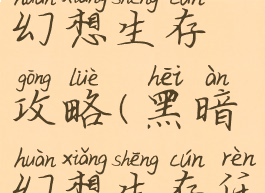 huàn xiǎng shēng cún
幻想生存
gōng lüè hēi àn
攻略(黑暗
huàn xiǎng shēng cún rèn
幻想生存任